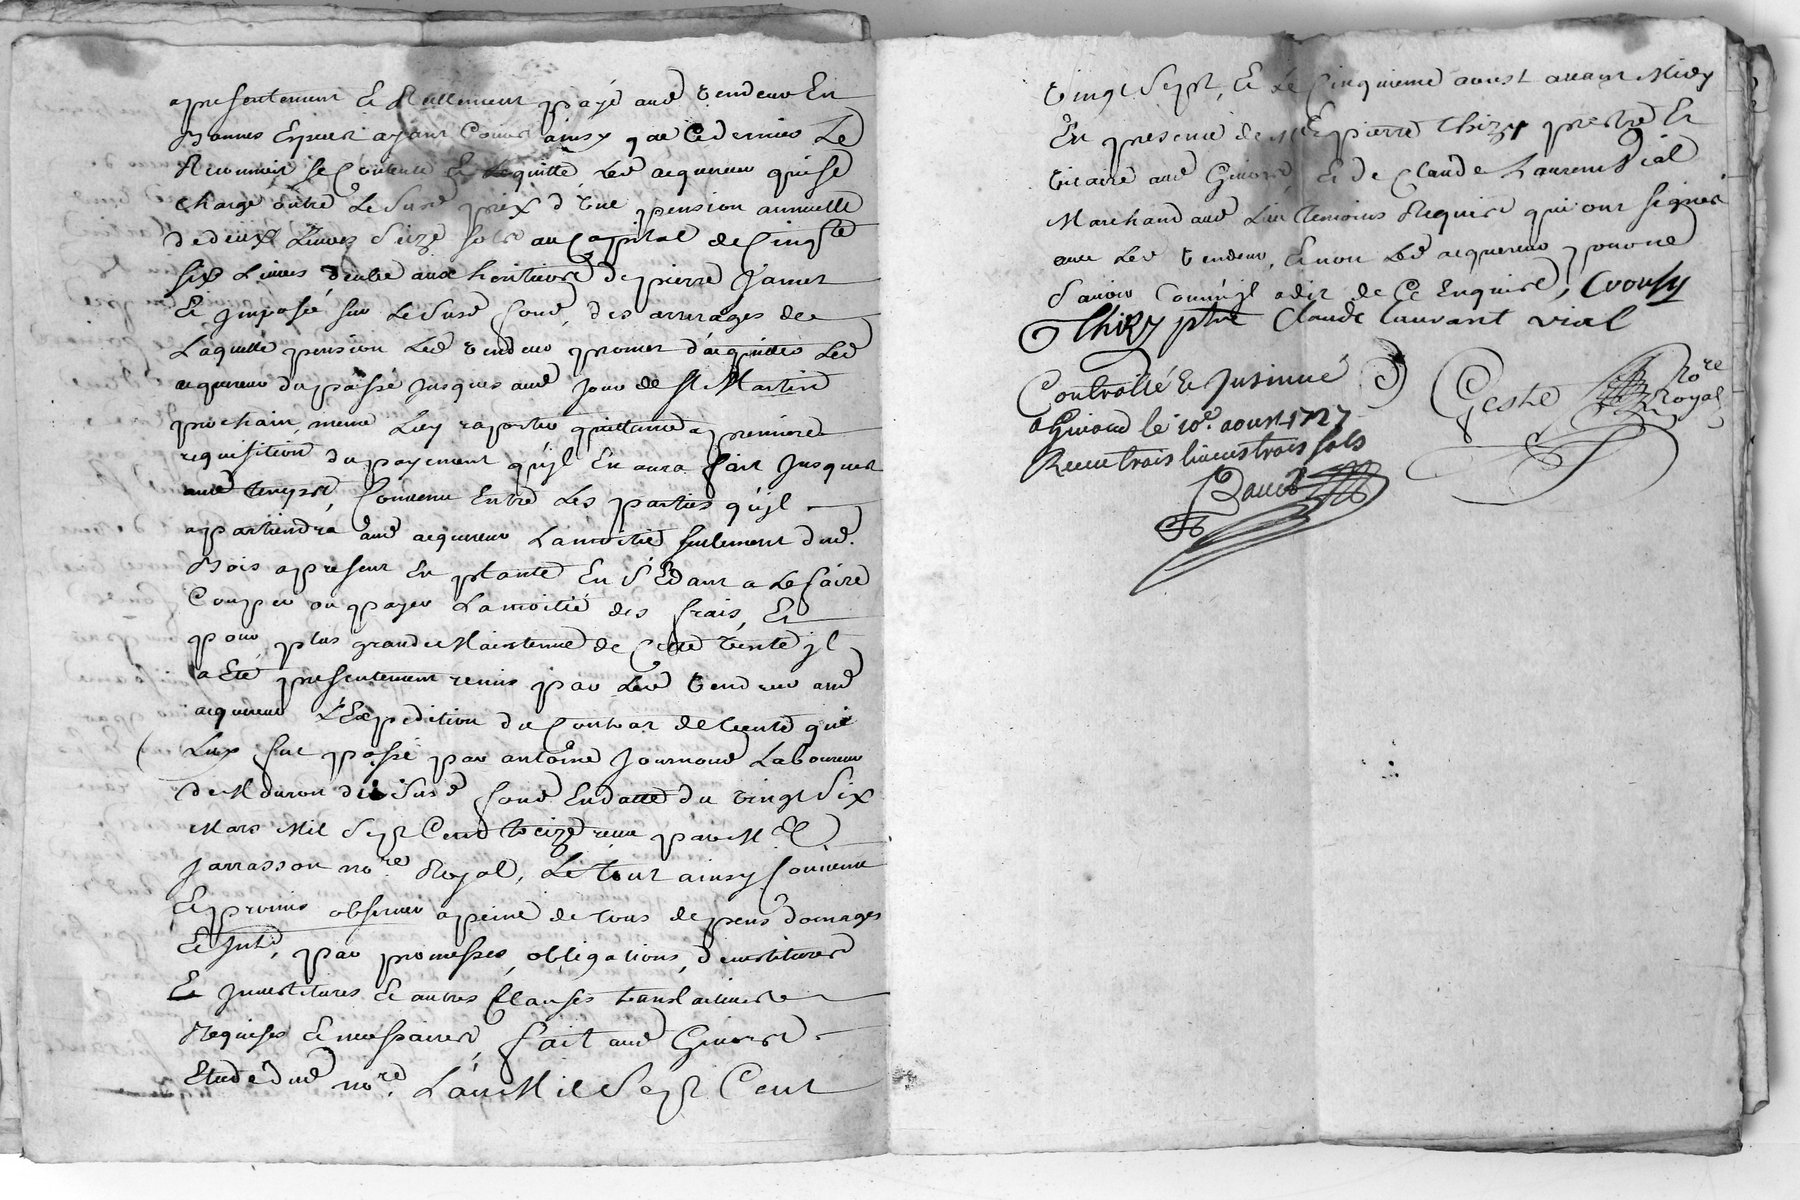 apresentement et Reellement payé aud vendeur En
Bonnes Especes ayant Cours ainsy que Ce dernier Le
Reconnoit se Contente Et quitte Led acquereur qui se
Charge outre Le Susd prix d'Une pension annuelle
de deux Livres Seize Sols au Capital de Cinqte
six Livres, deube aux heritiers de pierre Jamet
Et Jmposée sur Le Susd fond, des arrerages de
Laquelle pension Led vendeur promet d'acquitter Led
acquereur du passé Jusques aud Jour de St Martin
prochain, meme Luy raporter quittance a premiere
requisition du payement qu'jl En aura fait Jusques
aud temps, Convenu Entre Les parties qu'jl
apartiendra aud acquereur La moitié seulement dud.
Bois apresent En plante En s'Edant a Le faire
Couper ou payer La moitié des frais, Et
pour plus grande Maintenue de Cette vente jl
a Eté presentement remis par Led vendeur aud
acquereur L'Expedition du Contrat de vente qui
Luy fut passé par antoine Journoud Laboureur
de Mouron du Susd fond En datte du vingt Six
Mars Mil Sept Cent treize reçu par Me
Jarrasson nore Royal, Le tout ainsy Convenu
Et promis observer a peine de tous depens domages
Et Jnts, par promesses, obligations, devestitures
Et Jnvestitures Et autres Clauses translatives
Requises Et necessaires, fait aud Givors
Etude dud nore. L'an Mil Sept Cent
vingt Sept, Et Le Cinquieme aoust avant Midy
En presence de Mre pierre thizy prestre Et
vicaire aud Givors, Et de Claude Laurens Vial
Marchand aud Lieu temoins Requis qui ont signés
avec Led vendeur, Et non Led acquereur pour ne
sçavoir Comm'jl a dit de Ce Enquis,
Thizy ptre Claude Lauvant vial
Controllé Et Jnsinué
a Givord le 10e. aoust 1727
Receu trois livres trois sols
Geste Nore
Royal